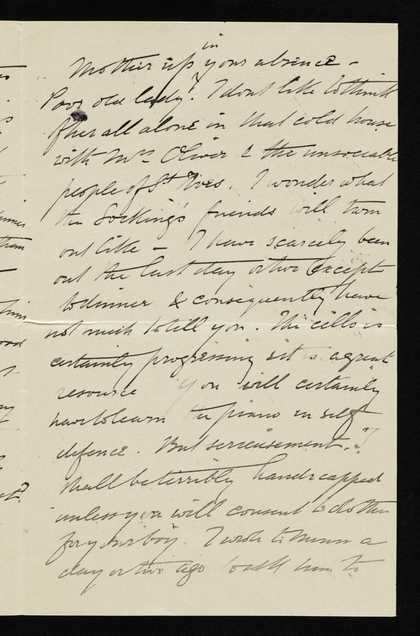 in
Mother up your absence -
Poor old lady! I dont like to think
of her all alone in that cold house
with Mrs Oliver & the unsociable
people of St Ives. I wonder what
the Socking's friends will turn
out like - I have scarcely been
out the last day or two except
to dinner & consequently have
not much to tell you. The cello is
certainly progressing & it is a great
resource You will certainly
have to learn the piano in self
defence. But serieusement, I
shall be terribly handicapped
unless you will consent to do this
for your boy. I wrote to a
day or two ago to ask him to